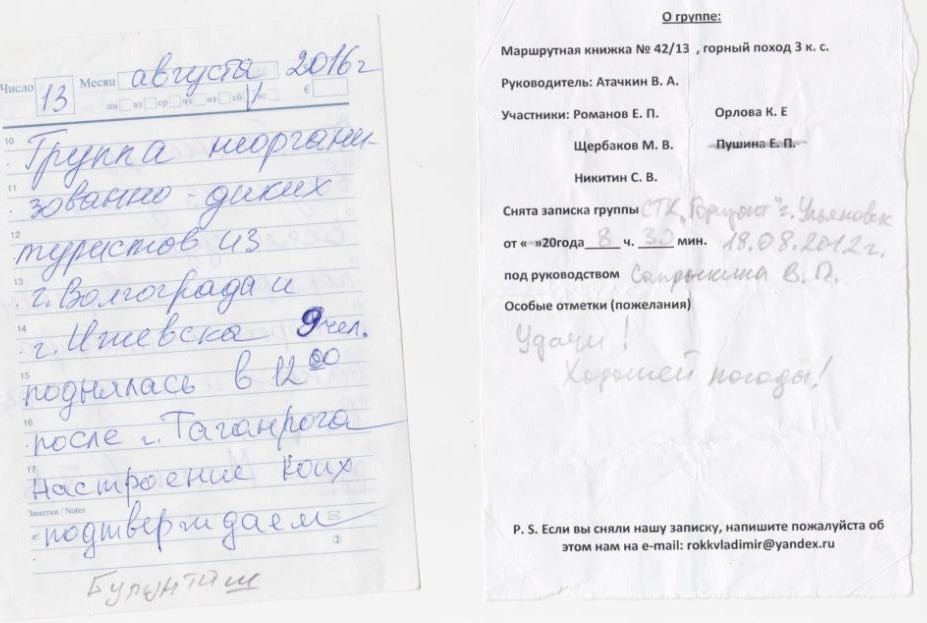 Число 13 Месяц августа 2016г
пн вт ср чт пт сб вс €
10 Группа неоргани-
11 зованно-диких
12 туристов из
13 г. Волгограда и
14 г. Ижевска 9 чел.
15 поднялась в 12 00
16 после г. Таганрога
17 Настроение коих
Заметки / Notes
подтверждаем
Бурунташ
О группе:
Маршрутная книжка № 42/13 , горный поход 3 к. с.
Руководитель: Атачкин В. А.
Участники: Романов Е. П. Орлова К. Е
Щербаков М. В. Пушина Е. П.
Никитин С. В.
Снята записка группы СТК "Горизонт" г. Ульяновск
от « »20года 8 ч. 30 мин. 18.08.2012 г.
под руководством Сапрыкина В. П.
Особые отметки (пожелания)
Удачи!
Хорошей погоды!
P. S. Если вы сняли нашу записку, напишите пожалуйста об
этом нам на e-mail: rokkvladimir@yandex.ru